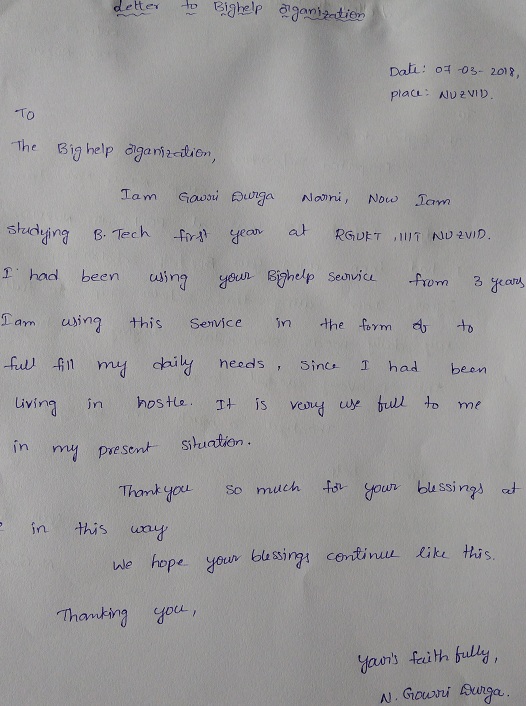 Letter to Bighelp organization
Date: 07-03-2018,
place: NUZVID.
To
The Big help organization,
Iam Gowri Durga Naomi, Now Iam
studying B. Tech first year at RGUKT ,IIIT NUZVID.
I had been using your Bighelp service from 3 years
Iam using this service in the form of to
full fill my daily needs, since I had been
living in hostle. It is very use full to me
in my present situation.
Thankyou so much for your blessings at
in this way
We hope your blessings continue like this.
Thanking you,
your's faith fully,
N. Gowri Durga.